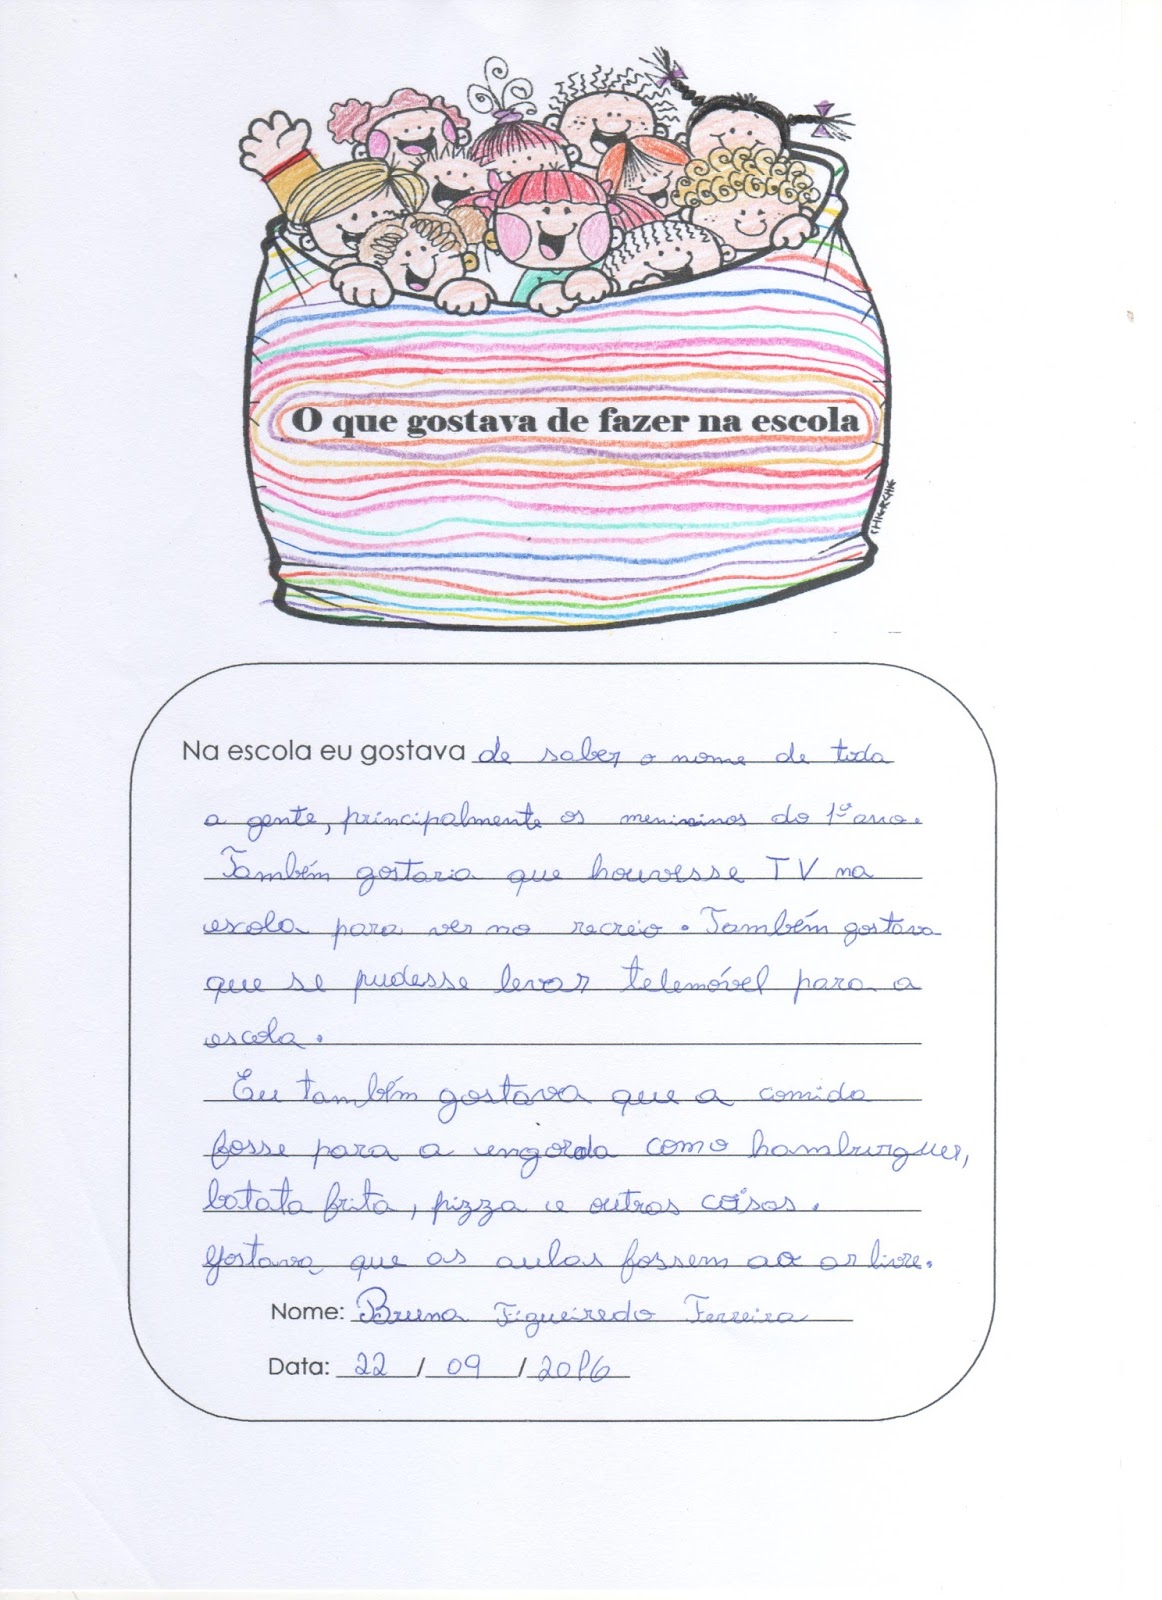 O que gostava de fazer na escola
CHIERCHIE
Na escola eu gostava de saber o nome de toda
a gente, principalmente os meninos do 1º ano.
Também gostaria que houvesse TV na
escola para ver no recreio. Também gostava
que se pudesse levar telemóvel para a
escola.
Eu também gostava que a comida
fosse para a engorda como hamburguer,
batata frita, pizza e outras coisas.
Gostava que as aulas fossem ao ar livre.
Nome: Bruna Figueiredo Ferreira
Data: 22 / 09 / 2016